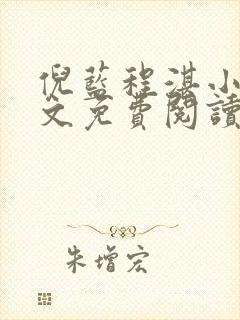 倪藍程湛小
文免費閱讀
朱增宏